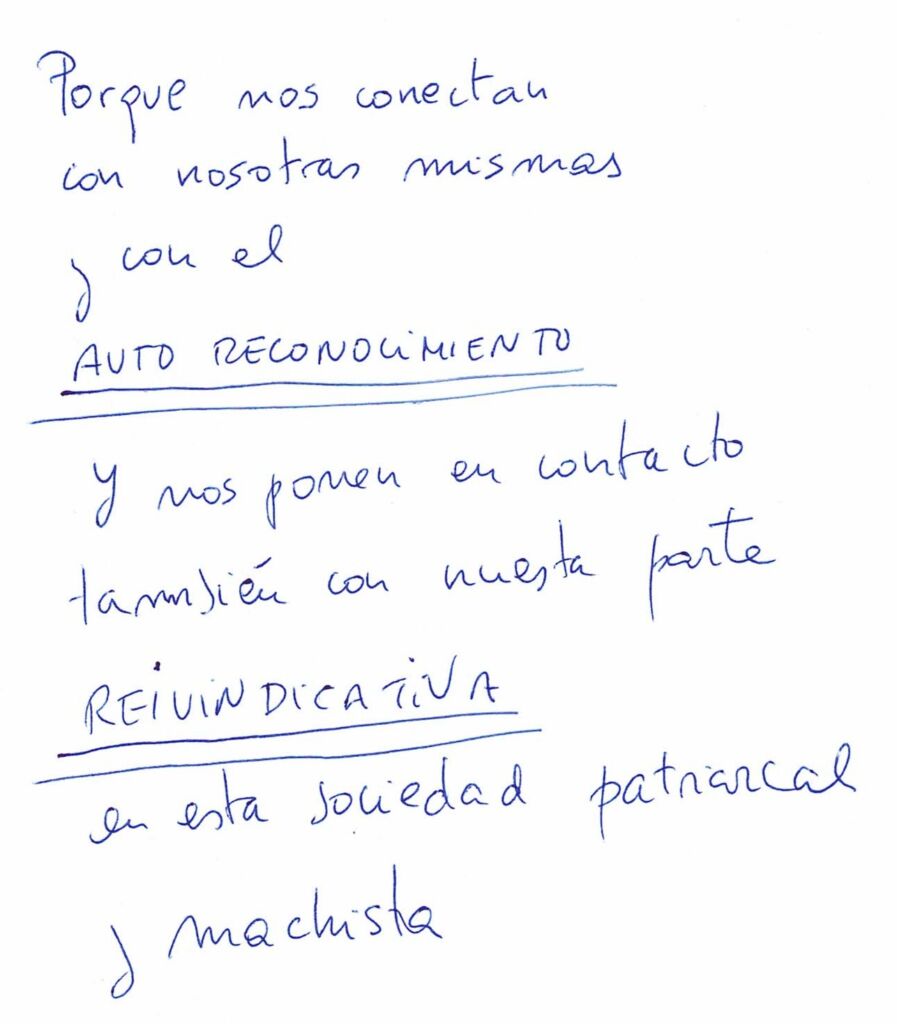 Porque nos conectan
con nosotras mismas
y con el
AUTO RECONOCIMIENTO
Y nos ponen en contacto
también con nuesta parte
REIVINDICATIVA
en esta sociedad patriarcal
y machista